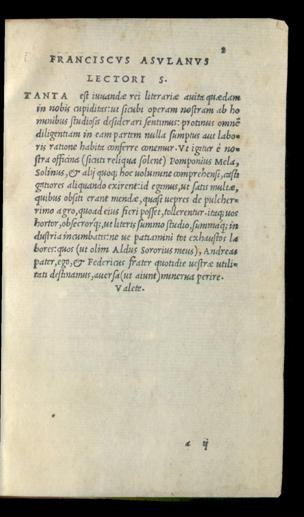 2
FRANCISCVS ASVLANVS
LECTORI S.
TANTA est iuuandæ rei literariæ auitæ quædam
in nobis cupiditas: ut sicubi operam nostram ab ho
minibus studiosis desiderari sentimus: protinus omnē
diligentiam in eam partem nulla sumptus aut labo-
ris ratione habita conferre conemur. Vt igitur è no-
stra officina (sicuti reliqua solent) Pomponius Mela,
Solinus, & alij quoq; hoc uolumine comprehensi, casti
gatiores aliquando exirent: id egimus, ut satis multæ,
quibus obsiti erant mendæ, quasi uepres de pulcher-
rimo agro, quoad eius fieri posset, tollerentur. itaq; uos
hortor, obsecrorq; ut literis summo studio, summaq; in
dustria incumbatis: ne uè patiamini tot exhaustos la
bores: quos (ut olim Aldus Sororius meus), Andreas
pater, ego, & Federicus frater quotidie uestræ utili-
tati destinamus, auersa (ut aiunt) minerua perire.
Valete.
a ij